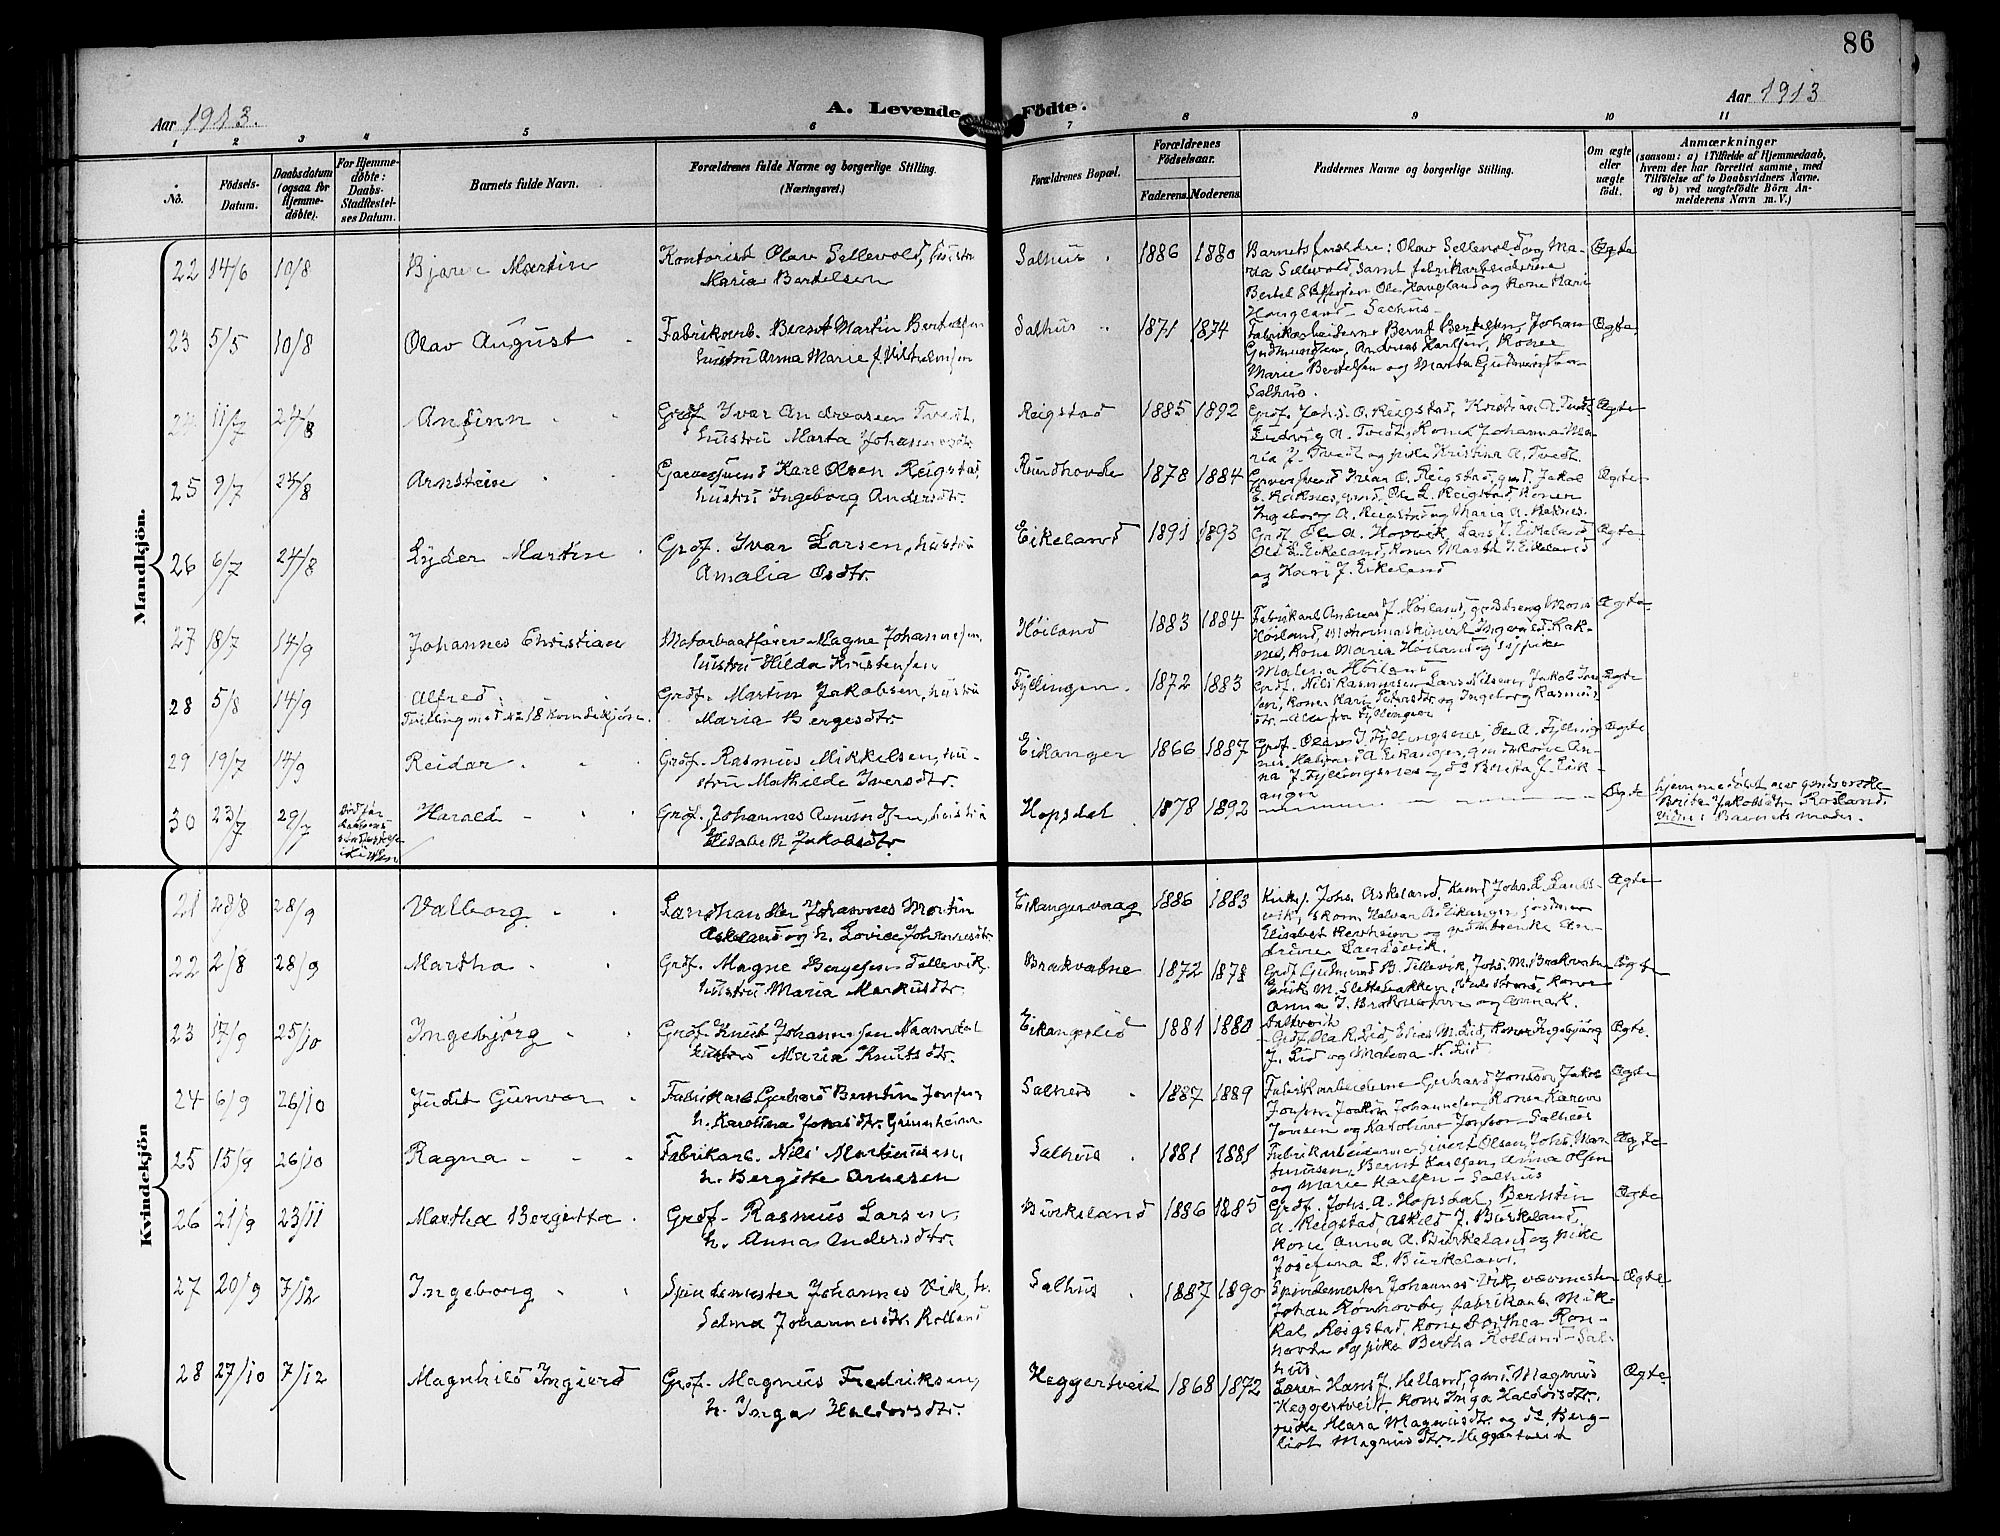 86
Aar 1913.
A. Levende Födte.
Aar 1913
1 2 3 4 5 6 7 8 9 10 11
No.
Födsels-Datum.
Daabsdatum (ogsaa for Hjemme-döbte).
For Hjemme-döbte: Daabs-Stadfæstel-ses Datum.
Barnets fulde Navn.
Forældrenes fulde Navne og borgerlige Stilling. (Næringsvei.)
Forældrenes Bopæl.
Forældrenes Födselsaar.
Faderens. Moderens.
Faddernes Navne og borgerlige Stilling.
Om ægte eller uægte födt.
Anmærkninger
(saasom: a) i Tilfælde af Hjemmedaab,
hvem der har forrettet samme, med
Tilföielse af to Daabsvidners Navne.
og b) ved uægtefödte Börn An-
melderens Navn m. V.)
Mandkjön.
22 14/6 10/8 Bjarne Martin
Kontorist Olav Sellevold, hustru
Maria Bertelsen
Salhus 1886 1880
Barnets forældre: Olav Sellevold og Ma-
ria Sellevold, samt fabrikarbeiderne
Bertel Ole Haugland og kone Mari
Haugland - Salhus -
Ægte
23 5/5 10/8 Olav August
Fabrikarb. Bernt Martin Bertelsen
hustru Anna Marie f. Vilhelmsen
Salhus 1871 1874
Fabrikarbeiderne Bernt Bertelsen, Johan
Gudmundsen, Andreas Karlsen, Koner
Marie Bertelsen og Marta Gudmundsen
Salhus.
Ægte
24 11/7 24/8 Anfinn
Grdf. Ivar Andreassen Tvedt,
hustru Marta Johannesdtr.
Reigstad 1885 1892
Grdf. Johs. O. Reigstad, Kristian A. Tvedt
Ludvig A. Tvedt, Kone Johanna Ma-
ria J. Tvedt og pike Kristina A. Tvedt.
Ægte
25 9/7 24/8 Arnstein
Garversvend Karl Olsen Reigstad,
hustru Ingeborg Andersdtr.
Rundhovde 1878 1884
Garversvend Ivar O. Reigstad, gmd. Jakob
E. Raknes, gmd. Ole L. Reigstad, Koner
Ingeborg A. Reigstad og Maria A. Raknes.
Ægte
26 6/7 24/8 Lyder Martin
Grdf. Ivar Larsen, hustru
Amalia Osdtr.
Eikeland 1891 1893
Grdf. Ole A. Hovvik, Lars J. Eikeland
Ole L. Eikeland, Koner Marta J. Eikeland
og Kari J. Eikeland
Ægte
27 18/7 14/9 Johannes Christian
Motorbaatfører Magne Johannesen,
hustru Hilda Kristensen
Høiland 1883 1884
Fabrikarb. Andreas J. Høiland, gaarddreng Mons
Høiland, motormaskinert Ingvald Rak-
nes, Kone Maria Høiland og pike
Malena Høiland
Ægte
28 5/8 14/9 Alfred
Tvilling med no 18 kvindekjøn.
Grdf. Martin Jakobsen, hustru
Maria Bergesdtr.
Fyllingen. 1872 1883
Grdf. Nils Rasmussen Lars Nilsen, Jakob Iver-
sen, Koner Kari Petersdtr og Ingeborg Rasmus-
dtr. - Alle fra Fyllingen
Ægte
29 19/7 14/9 Reidar
Grdf. Rasmus Mikkelsen, hu-
stru Mathilde Iversdtr.
Eikanger 1866 1887
Grdf. Olav I. Fyllingsnes, Ole A. Fylling
nes, Halvard A. Eikanger, gmdskone An-
na J. Fyllingsnes - do Berita J. Eik-
anger
Ægte
30 23/7 29/7
Harald
Grdf. Johannes Amundsen, hustru
Elisabeth Jakobsdtr.
Hopsdal 1878 1892
Ægte
hjemmedøbt av
Brita Jakobsdtr Rosland.
Vidne: Barnets moder.
Kvindekjön
21 28/8 28/9 Valborg
Landhandler Johannes Martin
Askeland og h. Lovise Johannesdtr
Eikangervaag 1886 1883
Kirkes. Johs. Askeland, Johs. L. Lands-
vik, skom. Halvar A. Eikanger, jordmor
Elisabet Herheim og enke An-
drine Landsvik.
Ægte
22 2/8 28/9 Martha
Grdf. Magne Bergesen Tellevik,
hustru Maria Markusdtr.
Brakvatne 1872 1878
Grdf. Gudmund B. Tellevik, Johs. M. Brakvatne
Erik M. Slettebakken, Kone
Anna J. Brakvatne og
Ægte
23 17/9 25/10 Ingebjörg
Grdf. Knut Johannesen Naamdal
hustru Maria Knutsdtr.
Eikangslid 1881 1880
- Grdf. Ola K. Lid, Elias M. Lid, Koner Ingebjörg
J. Lid og Malena N. Lid
Ægte.
24 6/9 26/10 Judit Gunvor
Fabrikarb. Gerhard Berntin Jonsen
h. Karolina Jonasdtr. Grimsheim
Salhus 1887 1889
Fabrikarbeiderne Gerhard Jonson, Jakob
Jonsen, Joakim Johannesen, Koner Karen
Jonsen og Karoline Jonson - Salhus
Ægte
25 15/9 26/10 Ragna
Fabrikarb. Nils Martinusen,
h. Bergitte Arnesen
Salhus 1881 1881
Fabrikarbeiderne Sivert Olsen, Johs. Mar-
tinusen, Bernt Karlsen, Anna Olsen
og Marie Karlsen - Salhus
Ægte
26 21/9 23/11 Martha Bergetta
Grdf. Rasmus Larsen,
h. Anna Andersdtr.
Burkeland 1886 1885
Grdf. Johs. A. Hopsdal, Berntin
A. Reigstad, Askeld J. Burkeland,
kone Anna A. Burkeland og pike
Josefina L. Burkeland.
Ægte
27 20/9 7/12 Ingeborg
Spindemester Johannes Vik, h.
Selma Johannesdtr. Rolland
Salhus 1887 1890
Spindemester Johannes Vik, vævmester
Johan Rønhovde, fabrikarb. Mik-
kal Reigstad, kone Dorthea Røn-
hovde og pike Bertha Rolland - Sal-
hus
Ægte
28 27/10 7/12 Magnhild Ingjerd
Grdf. Magnus Fredriksen,
h. Inga Haldorsdtr.
Heggertveit 1868 1872
Lærer Hans J. Helland, gmd. Magnus
Heggertveit, kone Inga Haldorsdtr.
pike Klara Magnusdtr. og do. Berg-
liot Magnusdtr. Heggertveit
Ægte